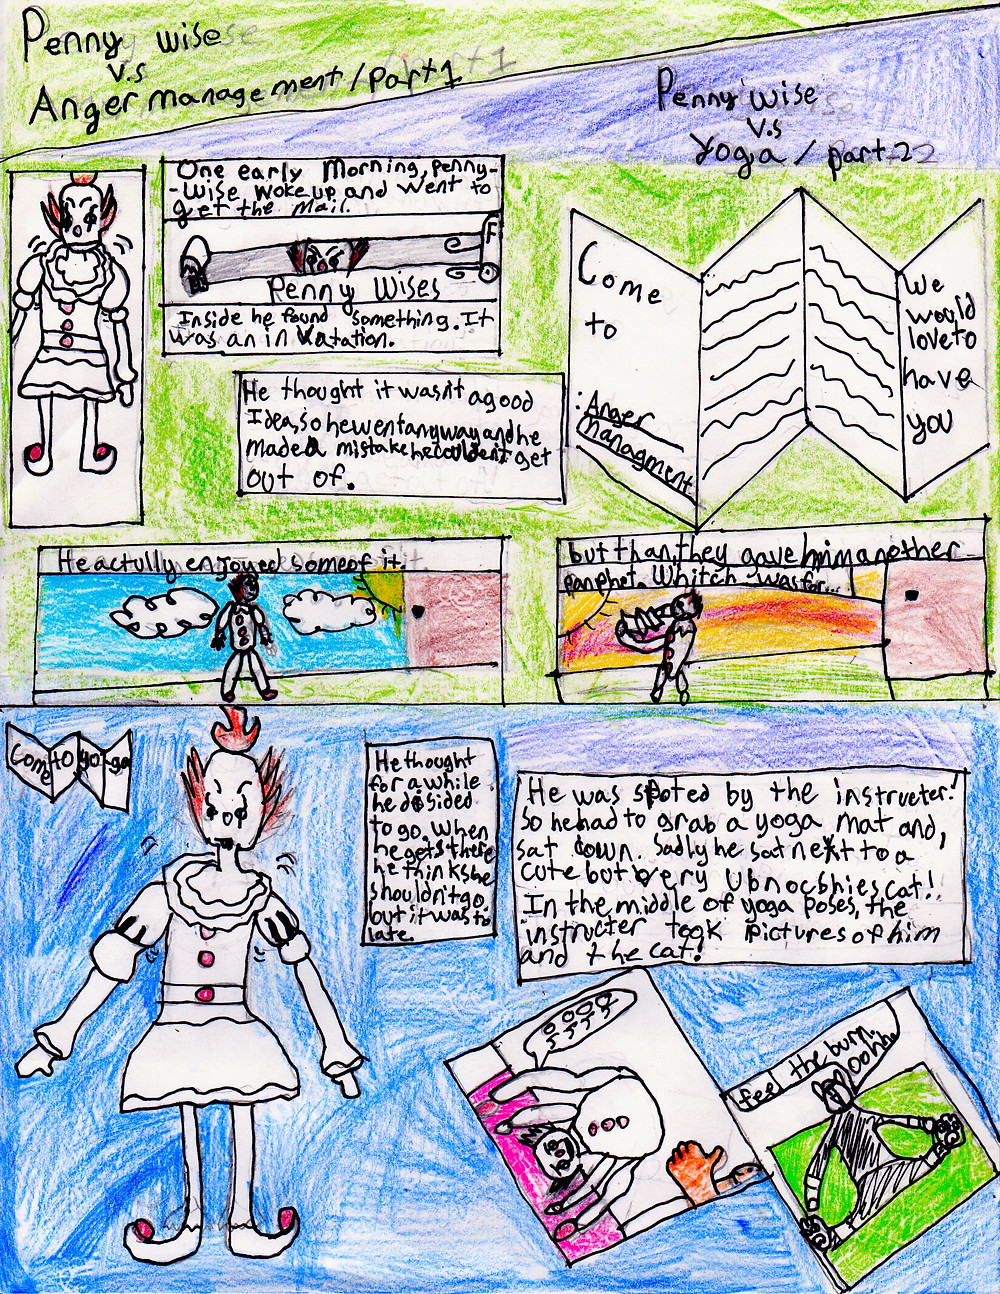 Penny wise
v.s
Anger management/part1
Penny wise
v.s
Yoga / part 2
One early Morning, Penny-
-wise woke up and went to
get the mail.
F
Penny wises
Inside he found something. It
was an in vatation.
Come
to
:Anger
managment
We
would
love to
have
you
He thought it wasn't a good
Idea, so he went anyway and he
made a mistake he couldent get
out of.
He actfully enjoyed some of it.
but than, they gave him another
panphet. Whitch was for...
Come to yo-ga
He thought
for a while
he desided
to go. When
he gets there
he thinks he
shouldn't go,
but it was to
late.
He was spoted by the instructer!
So he had to grab a yoga mat and,
sat down. Sadly he sat next to a
cute but very Ubnocshies cat!
In the middle of yoga poses, the
instructer took Pictures of him
and the cat!
feel the burn
Mooohh